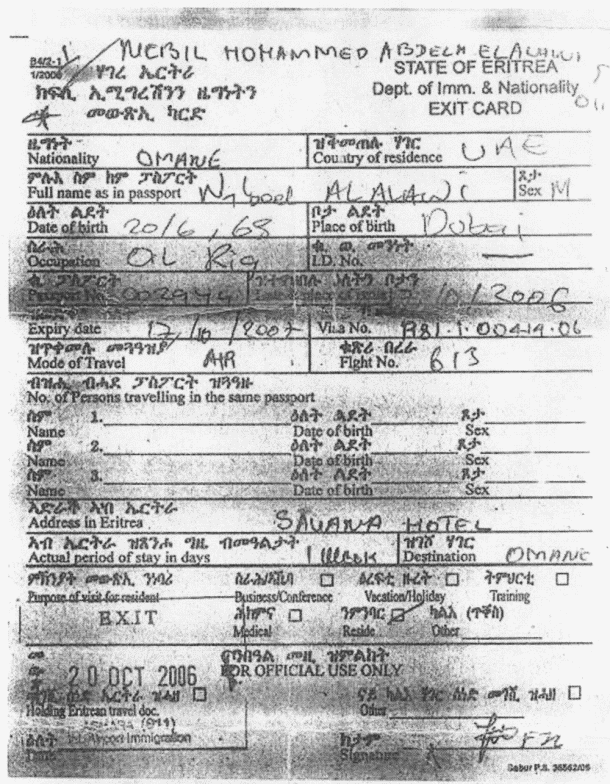 NEBIL MOHAMMED ABDELA ELALAWI
B4/2-1
1/2006 ሃገረ ኤርትራ STATE OF ERITREA
ክፍሊ ኢሚግረሽንን ዜግነትን Dept. of Imm. & Nationality
መውጽኢ ካርድ EXIT CARD
ዜግነት ዝቅመጠሉ ሃገር
Nationality OMANE Country of residence UAE
ምሉእ ስም ከም ፓስፖርት ጾታ
Full name as in passport ALALAWI Sex M
ዕለት ልደት ቦታ ልደት
Date of birth 20/6, 68 Place of birth Dubai
ስራሕ
Occupation OIL Rig I.D. No. —
ቁ. ፓስፖርት
Passport No. 2006
Expiry date 17/10/2007 Visa No.
ዝጥቀመሉ መጓዓዝያ ቁጽሪ በረራ
Mode of Travel AIR Flght No. 613
ብዝሒ ብሓደ ፓስፖርት ዝጓዓዙ
No. of Persons travelling in the same passport
ስም 1. ዕለት ልደት ጾታ
Name Date of birth Sex
ስም 2. ዕለት ልደት ጾታ
Name Date of birth Sex
ስም 3. ዕለት ልደት ጾታ
Name Date of birth Sex
ኣድራሻ ኣብ ኤርትራ
Address in Eritrea SAVANA HOTEL
ኣብ ኤርትራ ዝጸንሖ ግዜ ብመዓልታት ዝኸዶ ሃገር
Actual period of stay in days 1 Week Destination OMANE
ምኽንያት መውጽኢ ንነባሪ ስራሕ/ዋዕላ ዕረፍቲ ዙረት ትምህርቲ
Purpose of visit for resident Business/Conference Vacation/Holiday Training
EXIT ሕክምና ንምንባር ካልእ (ጥቐስ)
Medical Reside Other
ንወግዓዊ መዚ ዝምልከት
20 OCT 2006 FOR OFFICIAL USE ONLY
Holding Eritrean travel doc. Other
Airport Immigration
ዕለት ክታም
Date Signature
Sabur P.S. 36562/05